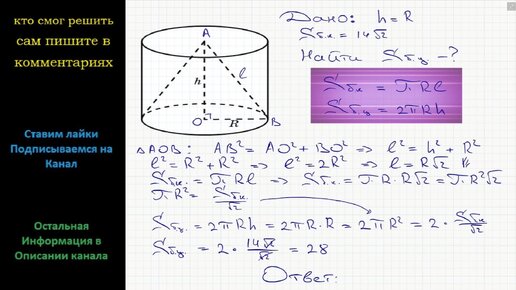 кто смог решить
сам пишите в
комментариях
Ставим лайки
Подписываемся на
Канал
Остальная
Информация в
Описании канала
A
h
l
O
R
B
Дано: h = R
Sбк. = 14√2
Найти Sбц - ?
Sбк = πRl
Sбц = 2πRh
ΔAOB: AB² = AO² + BO² => l² = h² + R²
l² = R² + R² => l² = 2R² => l = R√2
Sбк. = πRl => Sбк. = π·R·R√2 = πR²√2
πR² = Sбк/√2
Sбц. = 2πRh = 2πR·R = 2πR² = 2 · Sбк/√2
Sбц. = 2 · 14√2/√2 = 28
Ответ: